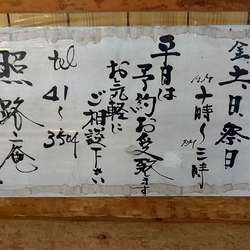 金土日祭日
AM 十時〜PM 三時
平日は
予約お受け致します
お気軽に
ご相談下さい
tel
41〜3504
照路庵